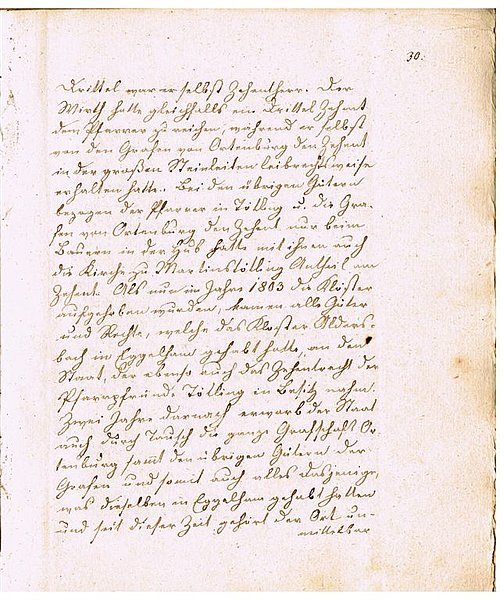 30.
Drittel war er selbst Zehentherr. Der
Wirth hatte gleichfalls ein Drittel Zehent
dem Pfarrer zu reichen, während er selbst
von den Grafen von Ortenburg den Zehent
in der großen Steinleiten leibrechtsweise
erhalten hatte. Bei den übrigen Gütern
bezogen der Pfarrer in Tötling u. die Gra-
fen von Ortenburg den Zehent nur beim
Bauern in der Hub hatte mit ihnen auch
die Kirche zu Martinstötling Antheil am
Zehent. Als nun im Jahre 1803 die Klöster
aufgehoben wurden, kamen alle Güter
und Rechte, welche das Kloster Alders-
bach in Eggelham gehabt hatte, an den
Staat, der ebenso auch das Zehentrecht der
Pfarrpfründe Tötling in Besitz nahm.
Zwei Jahre darnach erwarb der Staat
auch durch Tausch die ganze Grafschaft Or-
tenburg samt den übrigen Gütern der
Grafen und somit auch alles dasjenige,
was dieselben in Eggelham gehabt hatten
und seit dieser Zeit gehört der Ort un-
mittelbar